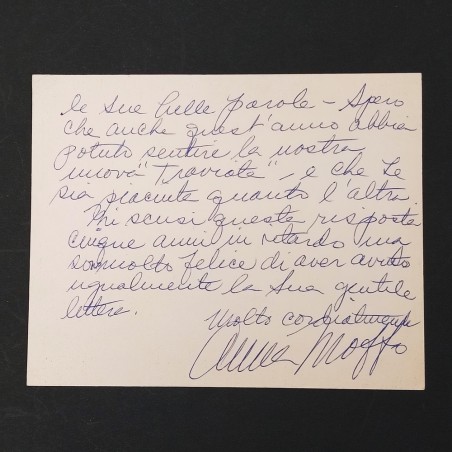 le sue belle parole - Spero
che anche quest'anno abbia
potuto sentire la nostra
nuova "Traviata" - e che Le
sia piaciuta quanto l'altra.
Mi scusi questa risposta
cinque anni in ritardo ma
son molto felice di aver avuto
ugualmente la Sua gentile
lettera.
Molto cordialmente
Anna Moffo